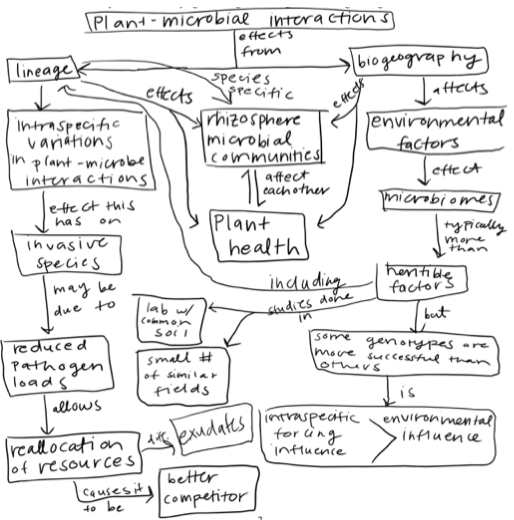 Plant-microbial interactions
effects
from
lineage
biogeography
species
specific
effects
effects
affects
intraspecific
variations
in plant-microbe
interactions
rhizosphere
microbial
communities
environmental
factors
affect
eachother
effect
effect this
has on
Plant
health
microbiomes
typically
more
than
invasive
species
including
heritible
factors
may be
due to
studies done
in
lab w/
common
soil
but
small #
of similar
fields
some genotypes are
more successful than
others
reduced
pathogen
loads
is
allows
intraspecific
forcing
influence
>
environmental
influence
reallocation
of resources
exudates
causes it
to be
better
competitor